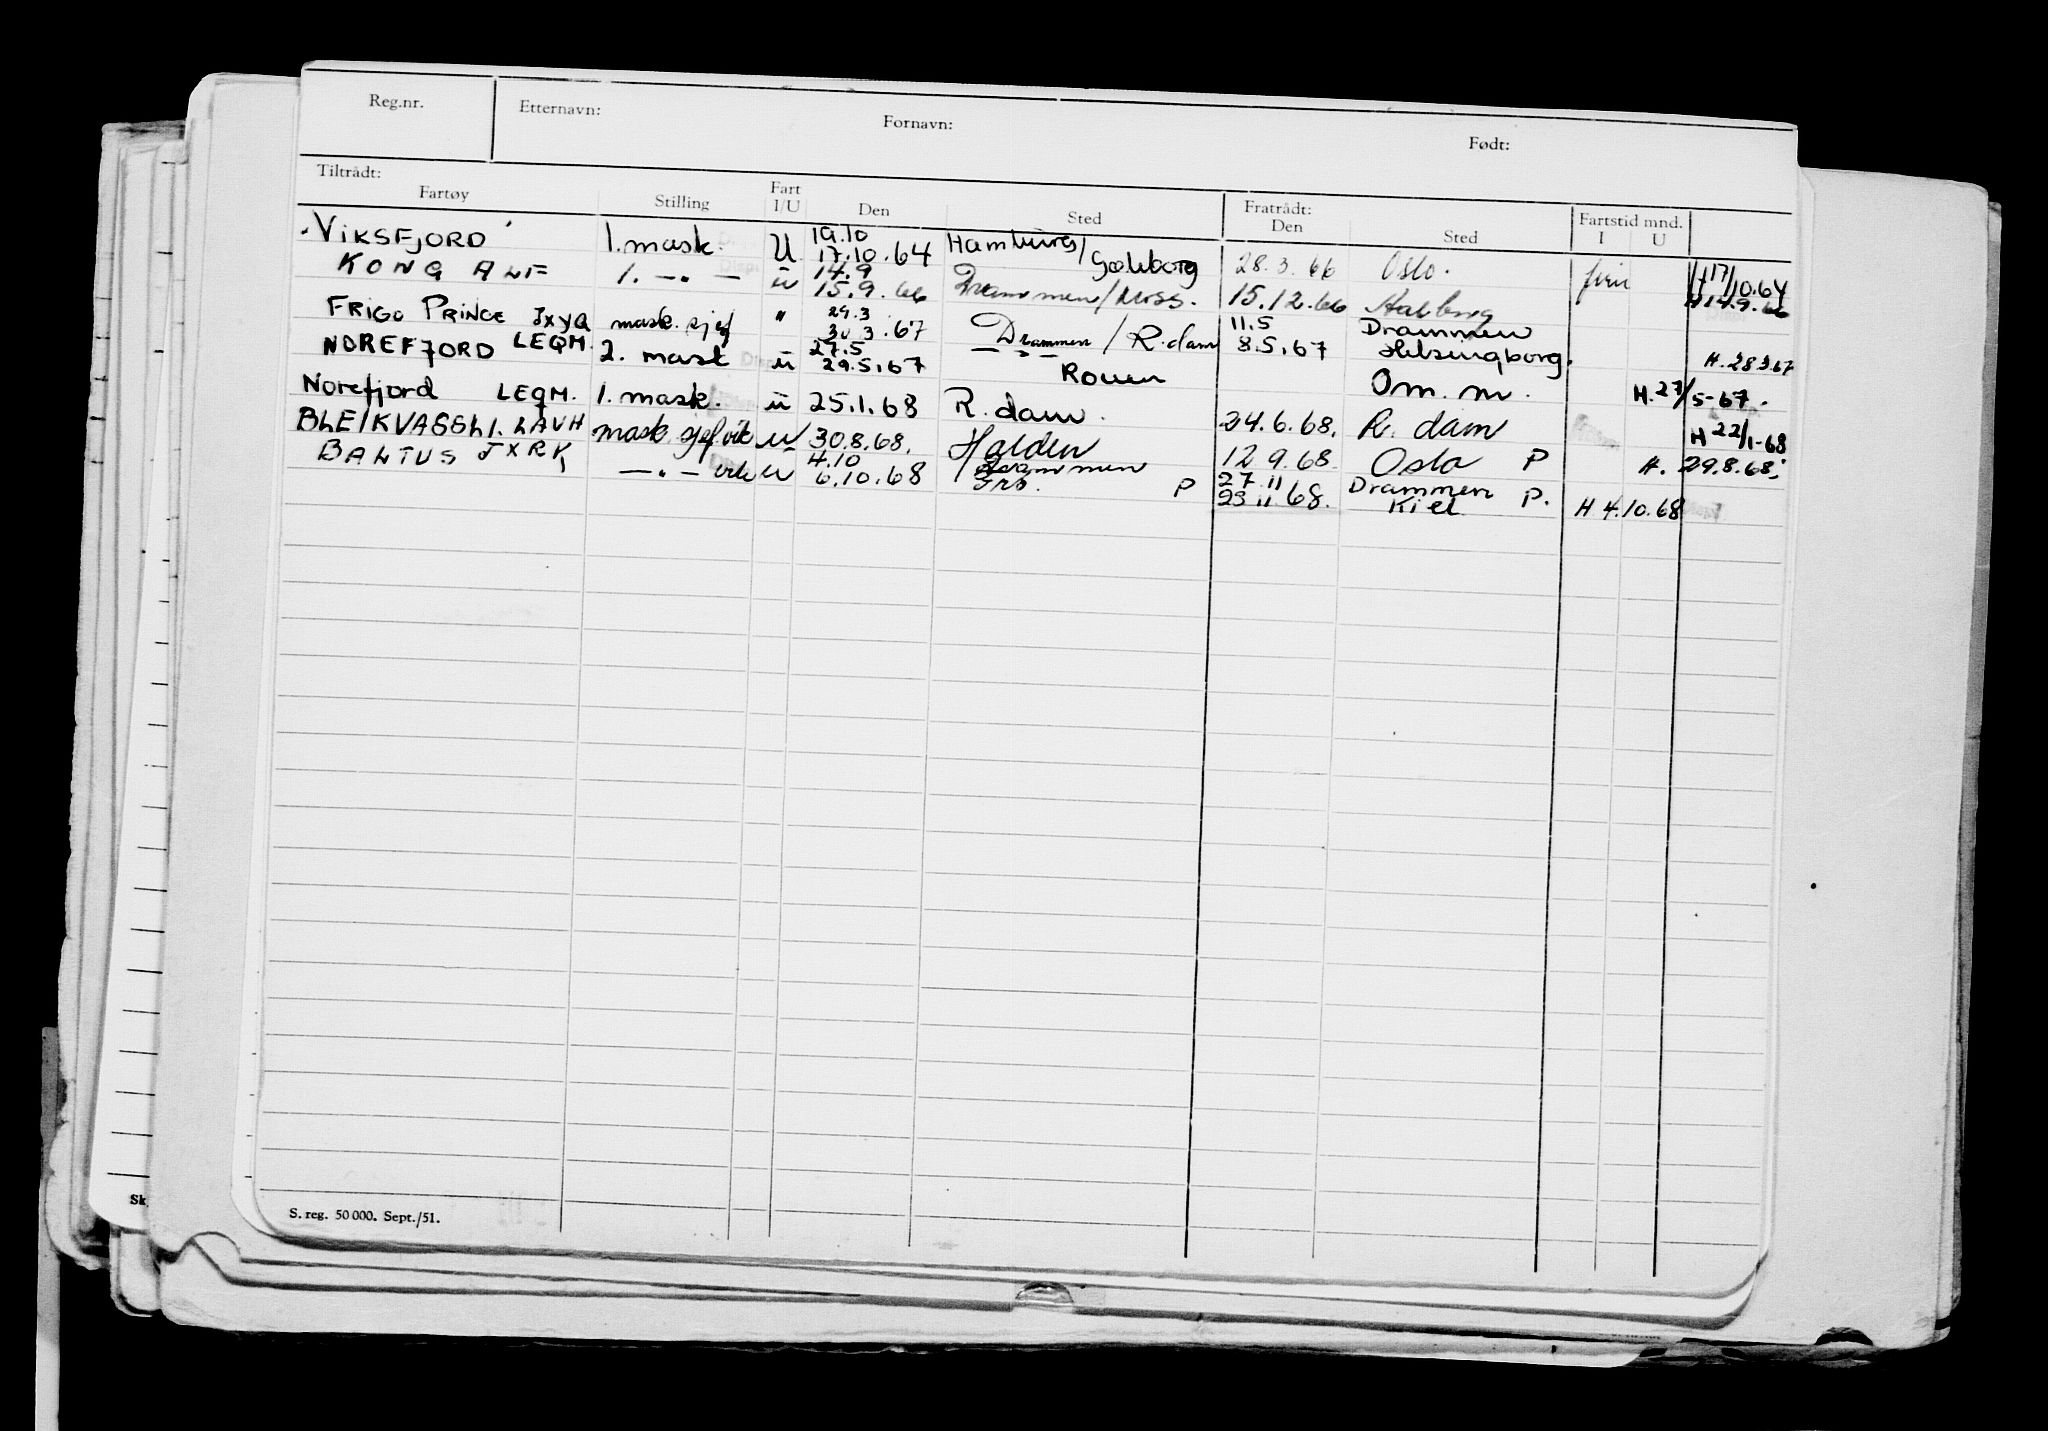 Reg.nr. Etternavn: Fornavn: Født:
Tiltrådt: Fratrådt: Fartstid mnd.
Fartøy Stilling Fart I/U Den Sted Den Sted I U
VIKSFJORD 1. mask. U 19.10 17.10.64 Hamburg/Gøteborg 28.3.66 Oslo. H 17/10.64
KONG ALF 1. -"- u 14.9 15.9.66 Drammen/Moss. 15.12.66 Aalborg H 14.9.66
FRIGO PRINCE JXYQ mask. sjef " 29.3 30.3.67 Drammen / R.dam 11.5 8.5.67 Drammen Helsingborg. H. 28.3.67
NOREFJORD LEQM. 2. mask u 27.5 29.5.67 -"- Rouen Om. m. H. 27/5-67.
Norefjord LEQM. 1. mask. u 25.1.68 R.dam. 24.6.68. R.dam H 22/1-68
BLEIKVASSLI. LAVH mask. sjef vik u 30.8.68. Halden 12.9.68. Oslo P H. 29.8.68.
BALTUS JXRK -"- u 4.10 6.10.68 Drammen P 27.11 29.11.68. Drammen Kiel P. H 4.10.68
S. reg. 50 000. Sept./51.
Sk